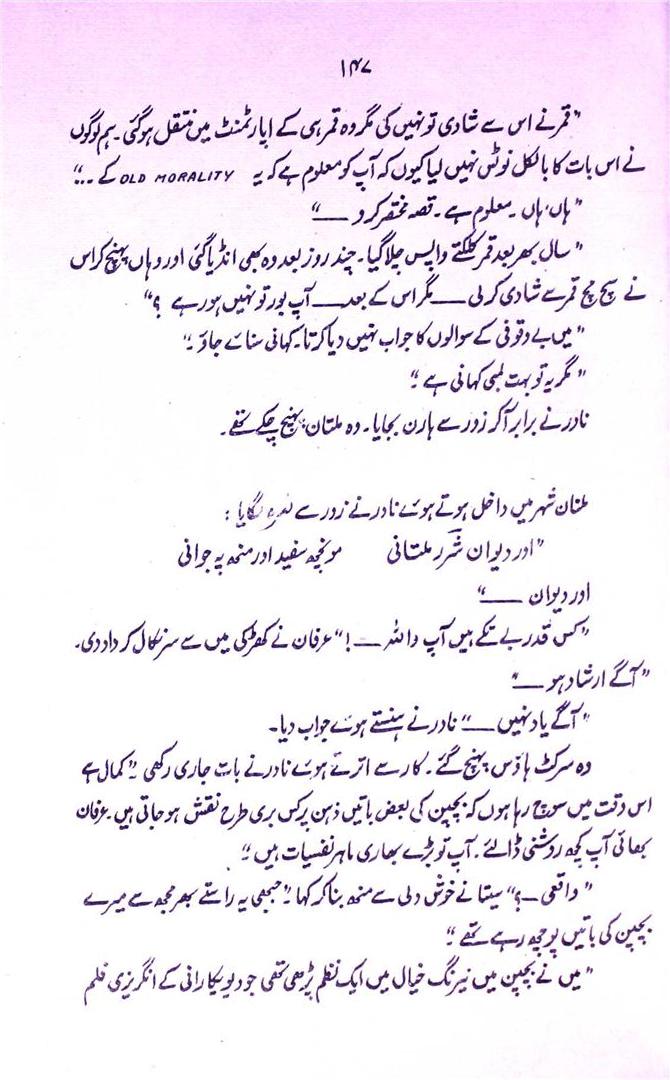 ۱۴۷
"قمر نے اس سے شادی تو نہیں کی مگر وہ قمر ہی کے اپارٹمنٹ میں منتقل ہو گئی۔ ہم لوگوں
نے اس بات کا بالکل نوٹس نہیں لیا کیوں کہ آپ کو معلوم ہے کہ یہ OLD MORALITY کے ..."
"ہاں، ہاں۔ معلوم ہے۔ قصہ مختصر کرو ——"
"سال بھر بعد قمر کلکتے واپس چلا گیا۔ چند روز بعد وہ بھی انڈیا گئی اور وہاں پہنچ کر اس
نے سچ مچ قمر سے شادی کر لی —— مگر اس کے بعد —— آپ بور تو نہیں ہو رہے ؟"
"میں بے وقوفی کے سوالوں کا جواب نہیں دیا کرتا۔ کہانی سنائے جاؤ۔"
"مگر یہ تو بہت لمبی کہانی ہے۔"
نادر نے برابر آ کر زور سے ہارن بجایا۔ وہ ملتان پہنچ چکے تھے۔
ملتان شہر میں داخل ہوتے ہوئے نادر نے زور سے نعرہ لگایا :
"اور دیوان شررؔ ملتانی مونچھ سفید اور منھ پہ جوانی
اور دیوان ——"
"کس قدر بے تکے ہیں آپ واللہ ——!" عرفان نے کھڑکی میں سے سر نکال کر داد دی۔
"آگے ارشاد ہو ——"
"آگے یاد نہیں ——" نادر نے ہنستے ہوئے جواب دیا۔
وہ سرکٹ ہاؤس پہنچ گئے۔ کار سے اترتے ہوئے نادر نے بات جاری رکھی "کمال ہے
اس وقت میں سوچ رہا ہوں کہ بچپن کی بعض باتیں ذہن پر کس بری طرح نقش ہو جاتی ہیں۔ عرفان
بھائی آپ کچھ روشنی ڈالئے۔ آپ تو بڑے بھاری ماہر نفسیات ہیں۔"
"واقعی —؟" سیتا نے خوش دلی سے منھ بنا کر کہا "جبھی یہ راستے بھر مجھ سے میرے
بچپن کی باتیں پوچھ رہے تھے۔"
"میں نے بچپن میں نیرنگ خیال میں ایک نظم پڑھی تھی جو دیویکا رانی کے انگریزی فلم